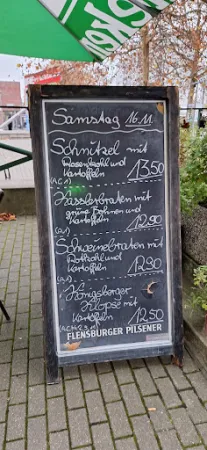 Samstag 16.11.
Schnitzel mit
Rosenkohl und
Kartoffeln
13,50
Kasslerbraten mit
grüne Bohnen und
Kartoffeln
12,90
Schweinebraten mit
Rotkohl und
Kartoffeln
12,90
Königsberger
Klopse mit
Kartoffeln
12,50
FLENSBURGER PILSENER